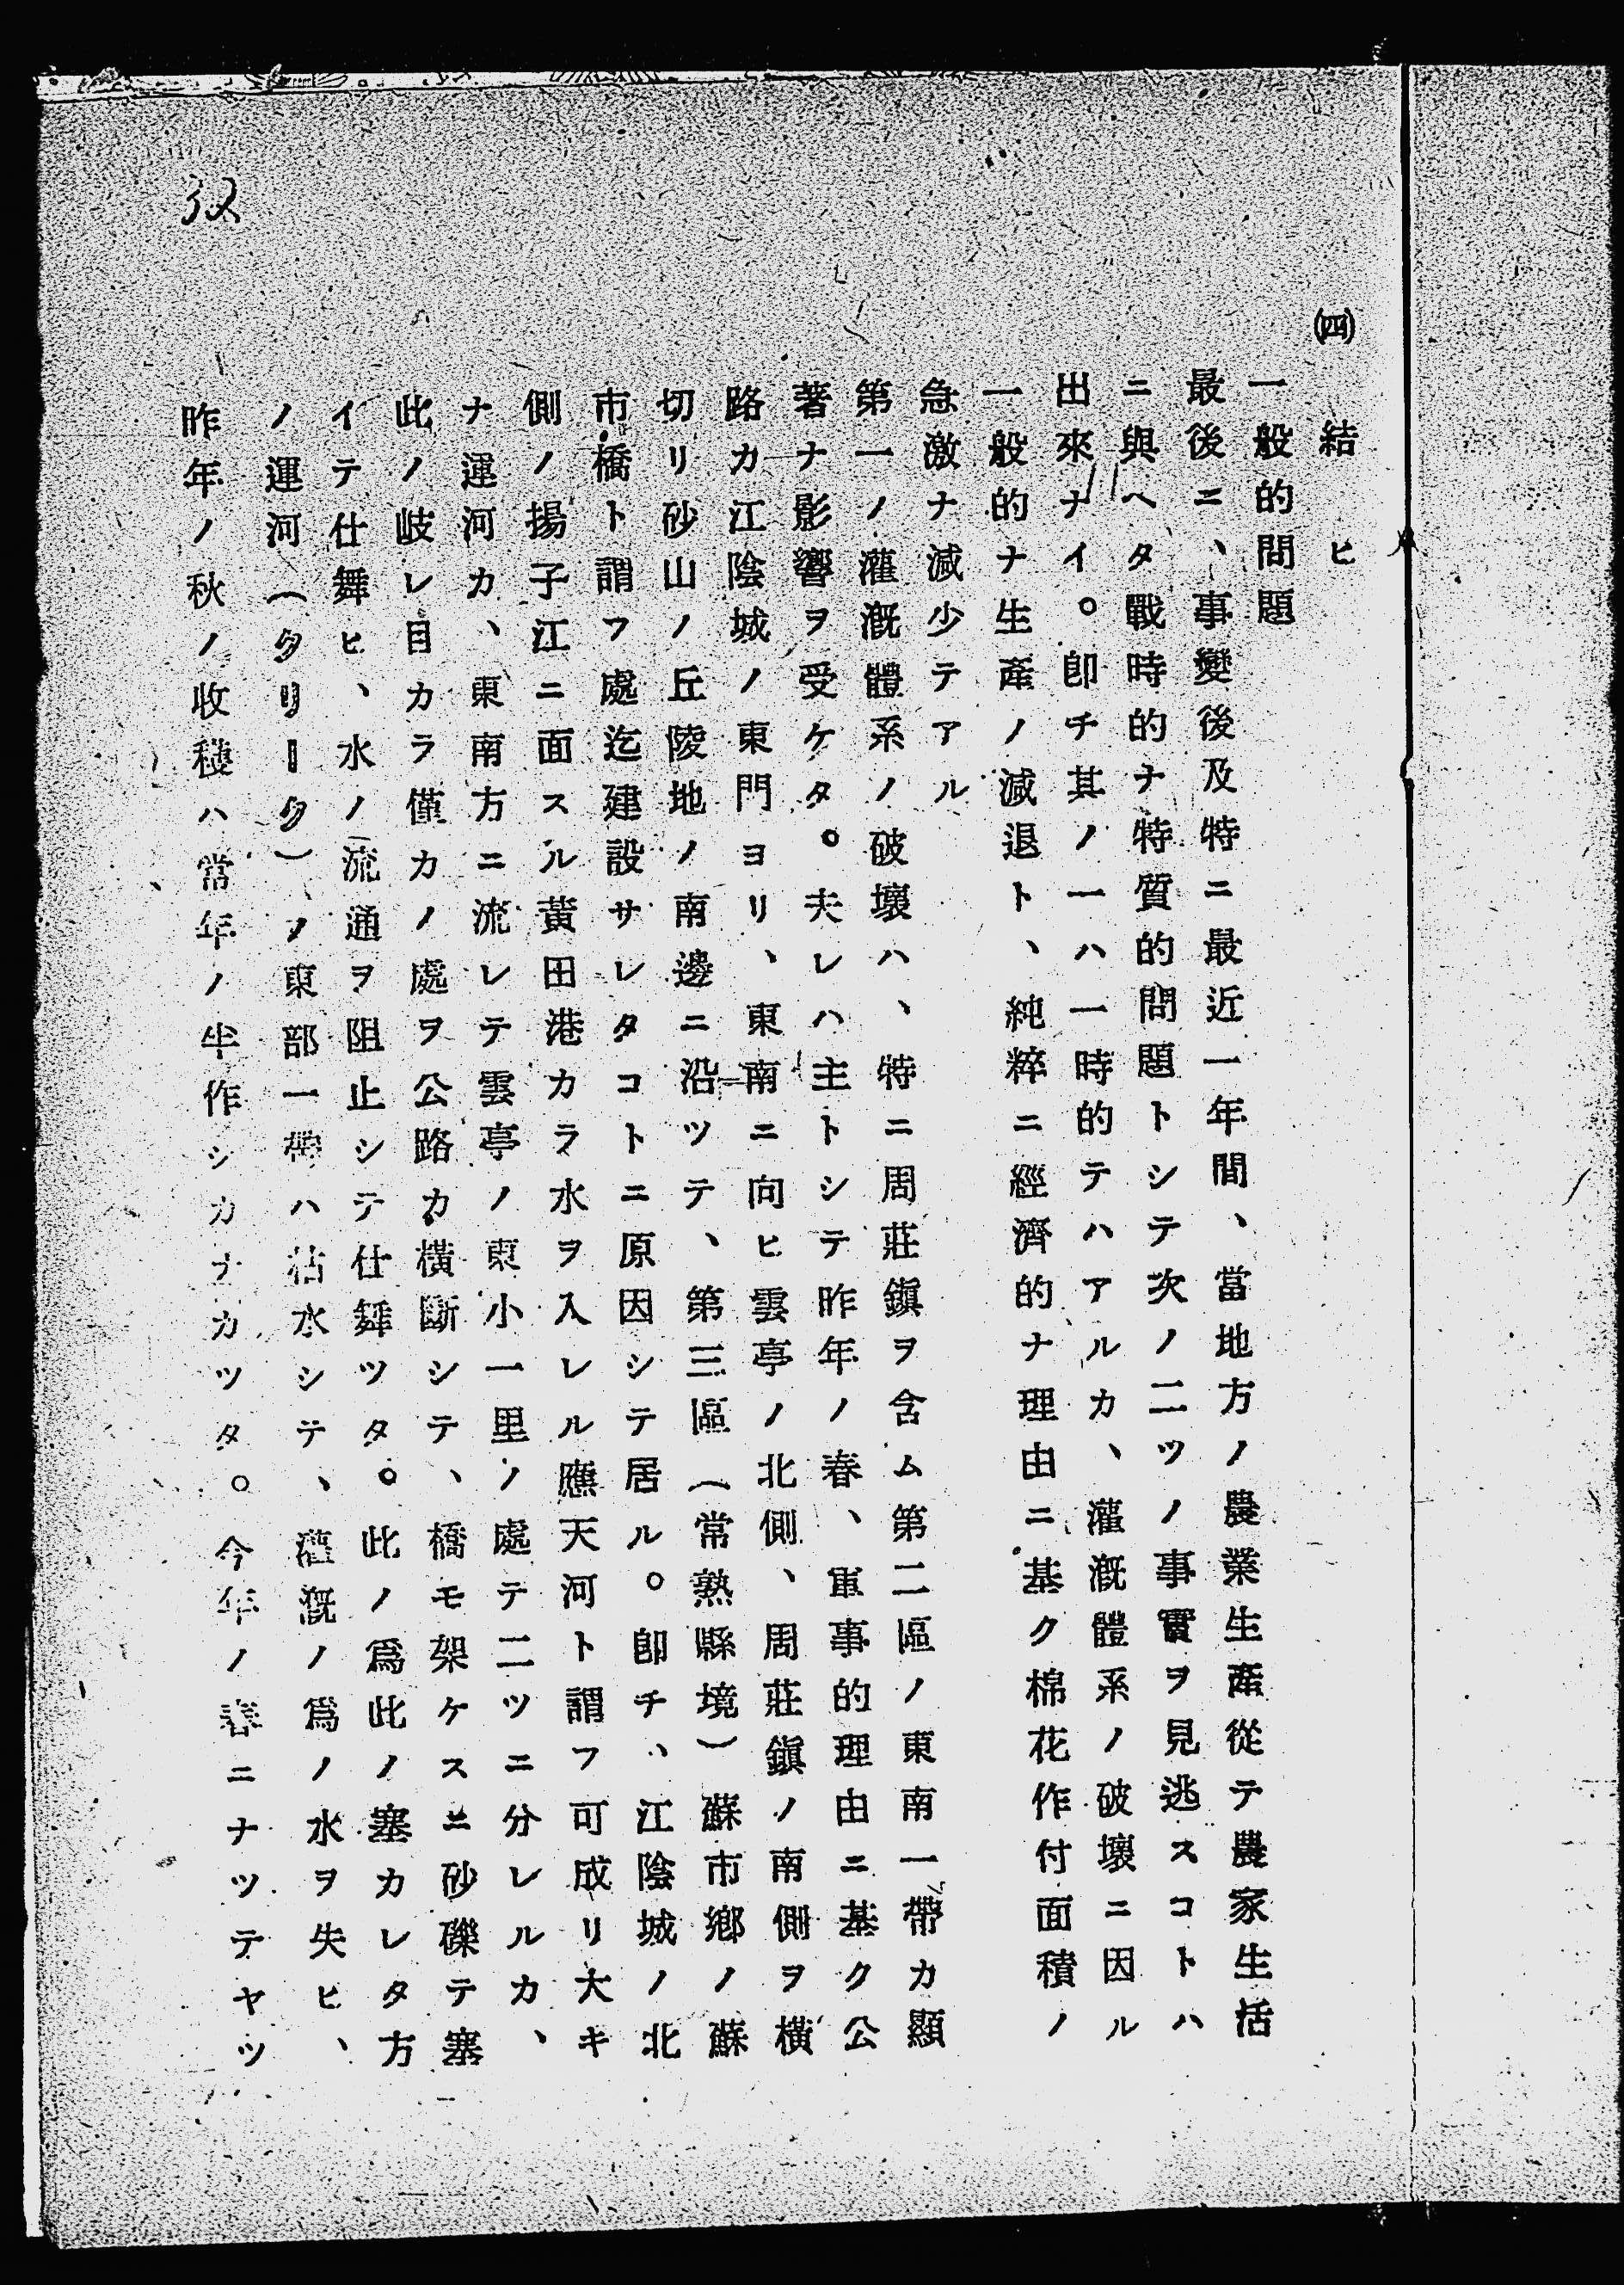 ㈣　結ヒ
一般的問題
最後ニ、事變後及特ニ最近一年間、當地方ノ農業生產從テ農家生活
ニ與ヘタ戰時的ナ特質的問題トシテ次ノ二ツノ事實ヲ見逃スコトハ
出來ナイ。卽チ其ノ一ハ一時的テハアルカ、灌漑體系ノ破壞ニ因ル
一般的ナ生產ノ減退ト、純粹ニ經濟的ナ理由ニ基ク棉花作付面積ノ
急激ナ減少テアル
第一ノ灌漑體系ノ破壞ハ、特ニ周莊鎭ヲ含ム第二區ノ東南一帶カ顯
著ナ影響ヲ受ケタ。夫レハ主トシテ昨年ノ春、軍事的理由ニ基ク公
路カ江陰城ノ東門ヨリ、東南ニ向ヒ雲亭ノ北側、周莊鎭ノ南側ヲ橫
切リ砂山ノ丘陵地ノ南邊ニ沿ツテ、第三區（常熟縣境）蘇市鄕ノ蘇
市橋ト謂フ處迄建設サレタコトニ原因シテ居ル。卽チ、江陰城ノ北
側ノ揚子江ニ面スル黃田港カラ水ヲ入レル應天河ト謂フ可成リ大キ
ナ運河カ、東南方ニ流レテ雲亭ノ東小一里ノ處テ二ツニ分レルカ、
此ノ岐レ目カラ僅カノ處ヲ公路カ橫斷シテ、橋モ架ケスニ砂礫テ塞
イテ仕舞ヒ、水ノ流通ヲ阻止シテ仕舞ツタ。此ノ爲此ノ塞カレタ方
ノ運河（クリーク）ノ東部一帶ハ枯水シテ、灌漑ノ爲ノ水ヲ失ヒ、
昨年ノ秋ノ收穫ハ常年ノ半作シカナカツタ。今年ノ春ニナツテヤツ
32